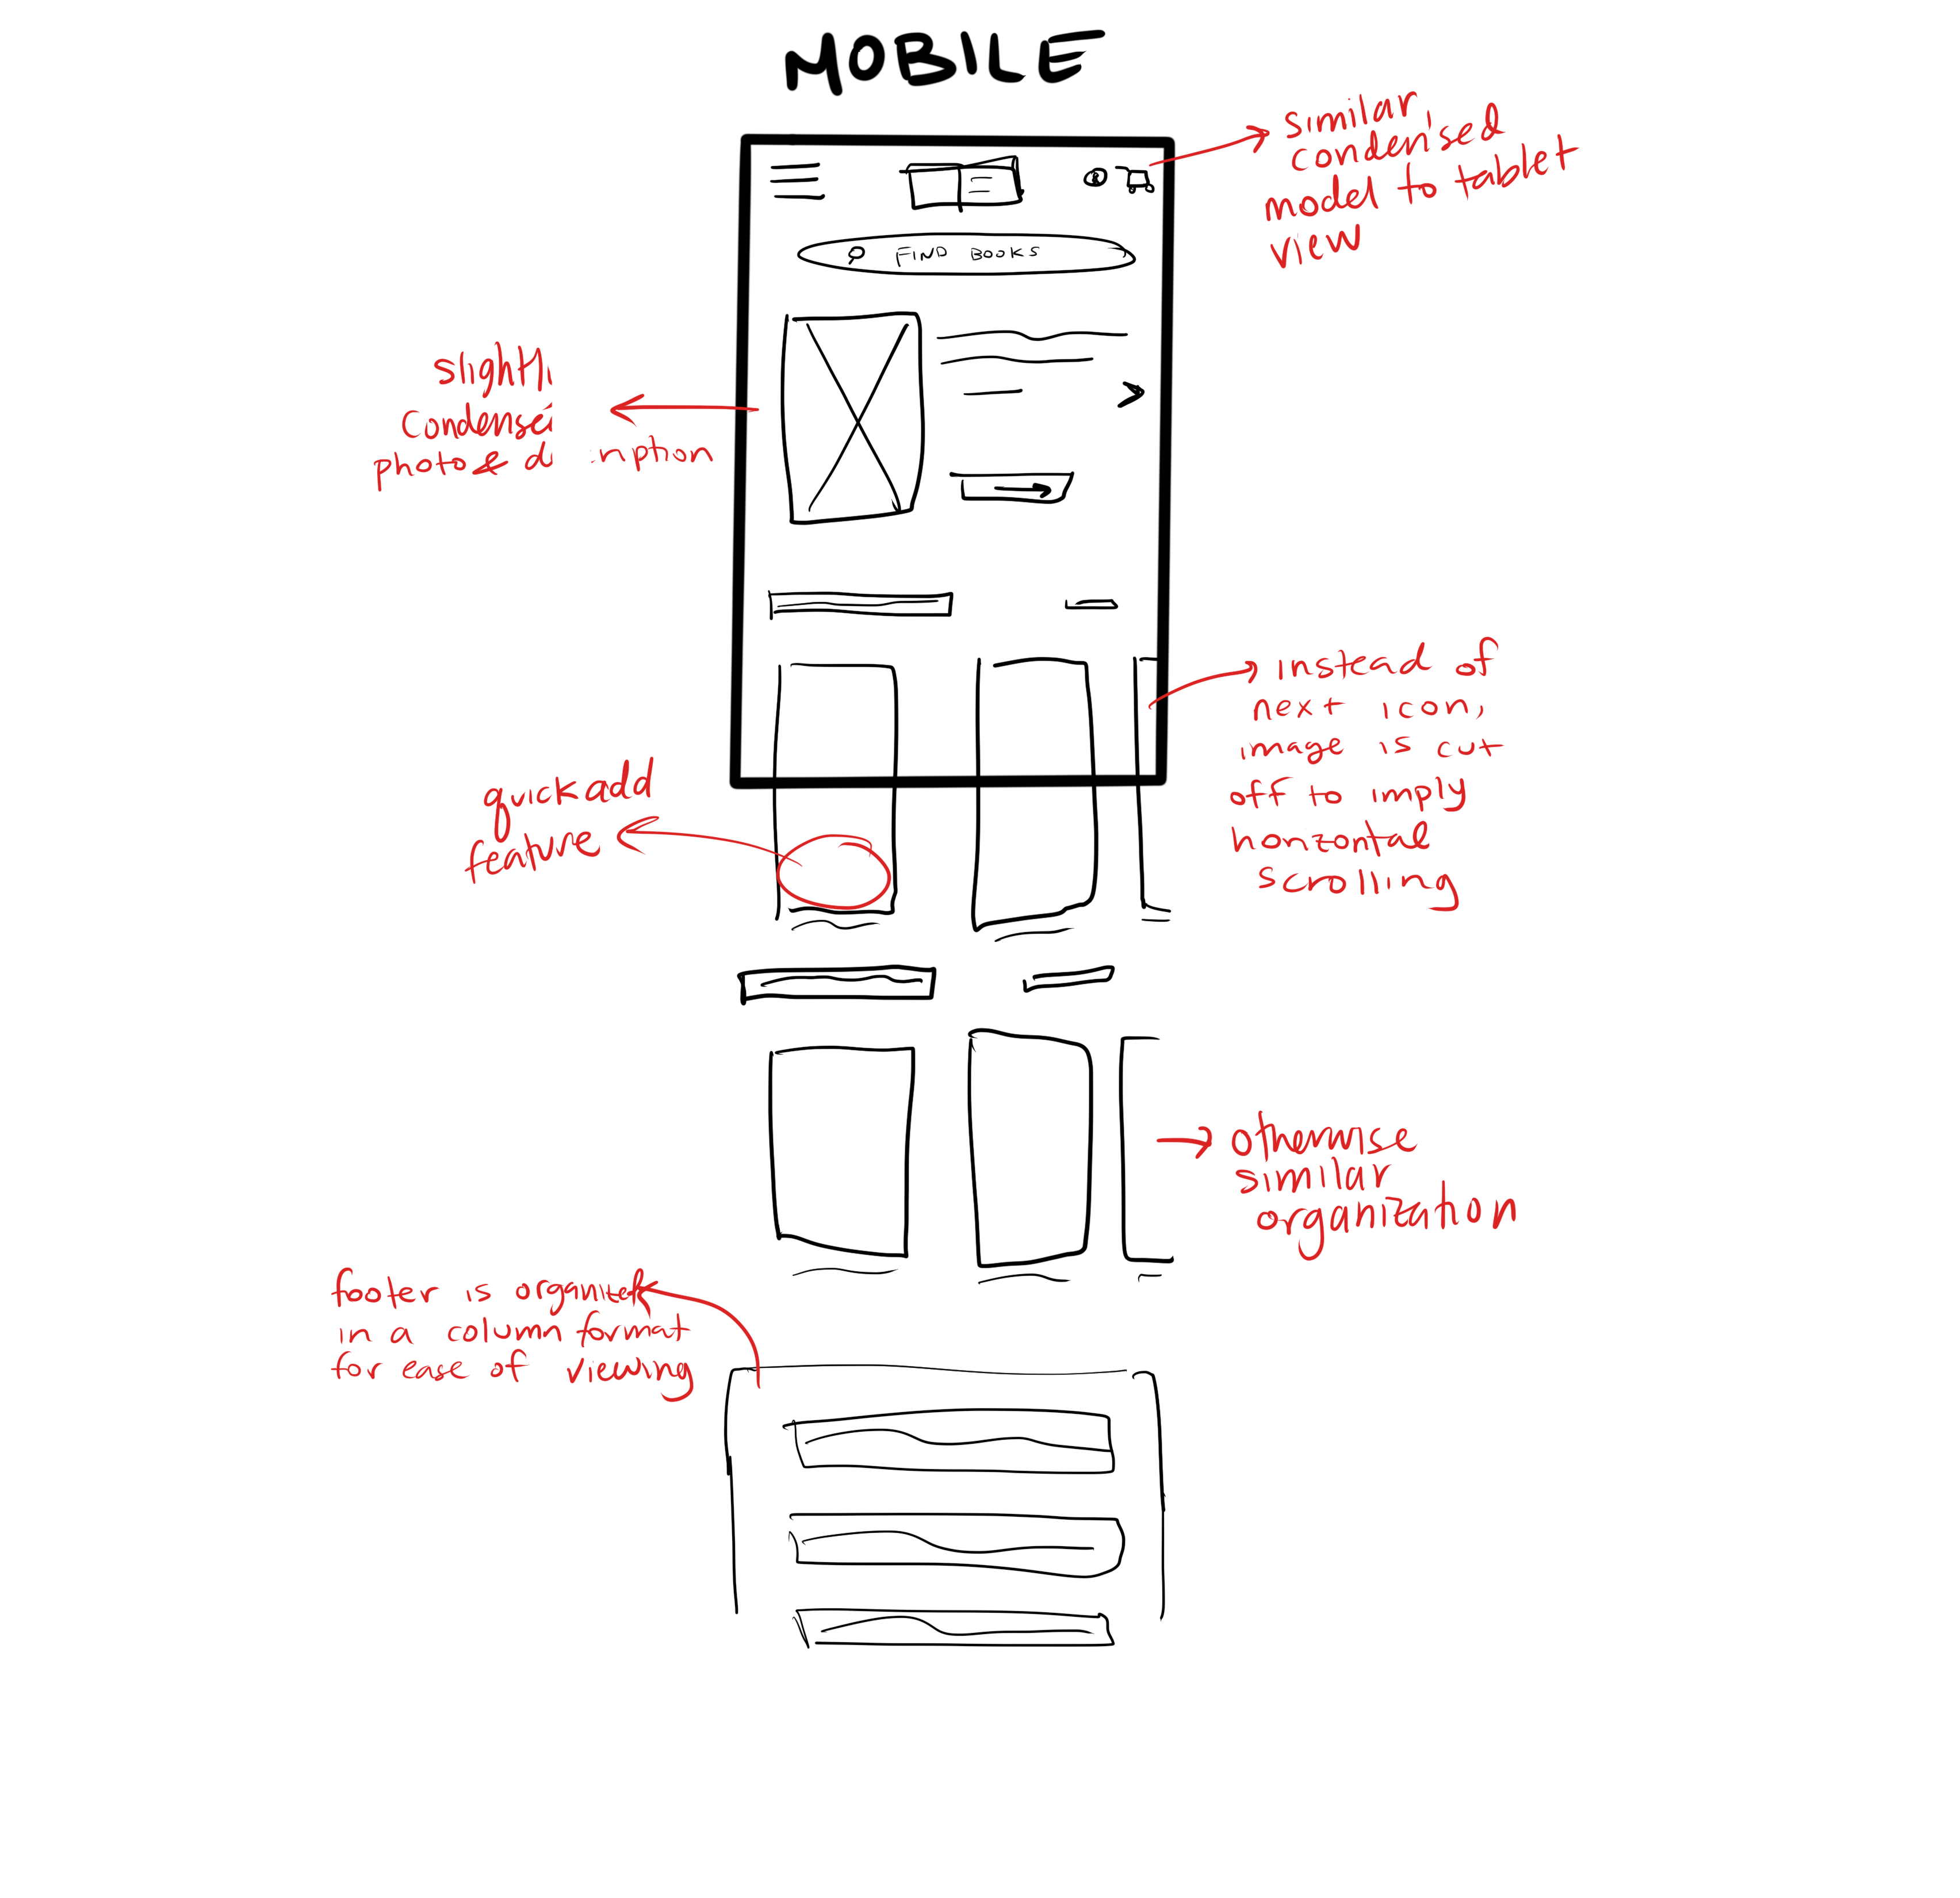 MOBILE
similar
condensed
model to tablet
view
FIND BOOKS
slightl
condense
photo & d
instead of
next icon,
image is cut
off to imply
horizontal
scrolling
quick add
feature
otherwise
similar
organization
footer is organized
in a column format
for ease of viewing